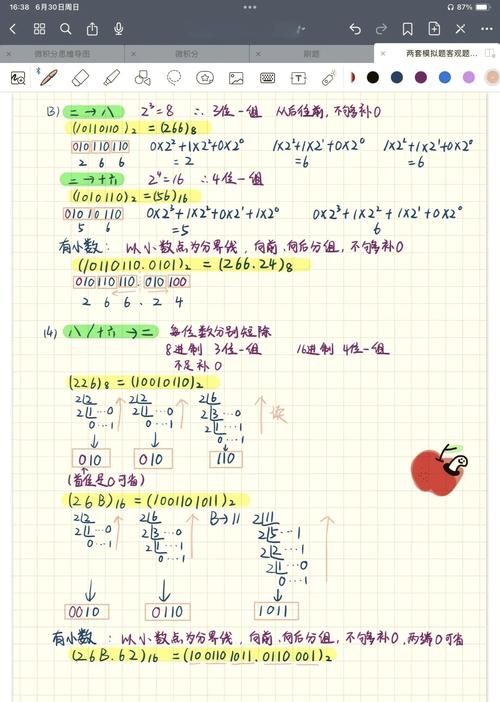 16:38 6月30日周日 87%
微积分思维导图 微积分 刷题 两套模拟题客观题...
(3) 二→八 2³=8 ∴3位一组 从后往前,不够补0
(10110110)₂=(266)₈
010 110 110 0×2²+1×2¹+0×2⁰ 1×2²+1×2¹+0×2⁰ 1×2²+1×2¹+0×2⁰
2 6 6 =2 =6 =6
二→十六 2⁴=16 ∴4位一组
(1010110)₂=(56)₁₆
0101 0110 0×2³+1×2²+0×2¹+1×2⁰ 0×2³+1×2²+1×2¹+0×2⁰
5 6 =5 6
有小数: 以小数点为分界线,向前、向后分组,不够补0
(10110110.0101)₂=(266.24)₈
010 110 110.010 100
2 6 6 . 2 4
(4) 八/十六→二 每位数分别短除
8进制 3位一组 16进制 4位一组
不足补0
(226)₈=(10010110)₂
2|2 2|2 2|6
2|1 …0 2|1 …0 2|3 …0
0 …1 0 …1 2|1 …1
0 …1
读
010 010 110
(首位是0可省)
(26B)₁₆=(1001101011)₂
2|2 2|6 B→11 2|11
2|1 …0 2|3 …0 2|5 …1
0 …1 2|1 …1 2|2 …1
0 …1 2|1 …0
0 …1
0010 0110 1011
有小数: 以小数点为分界线,向前、向后分组,不够补0,两端0可省
(26B.62)₁₆=(1001101011.0110 001)₂